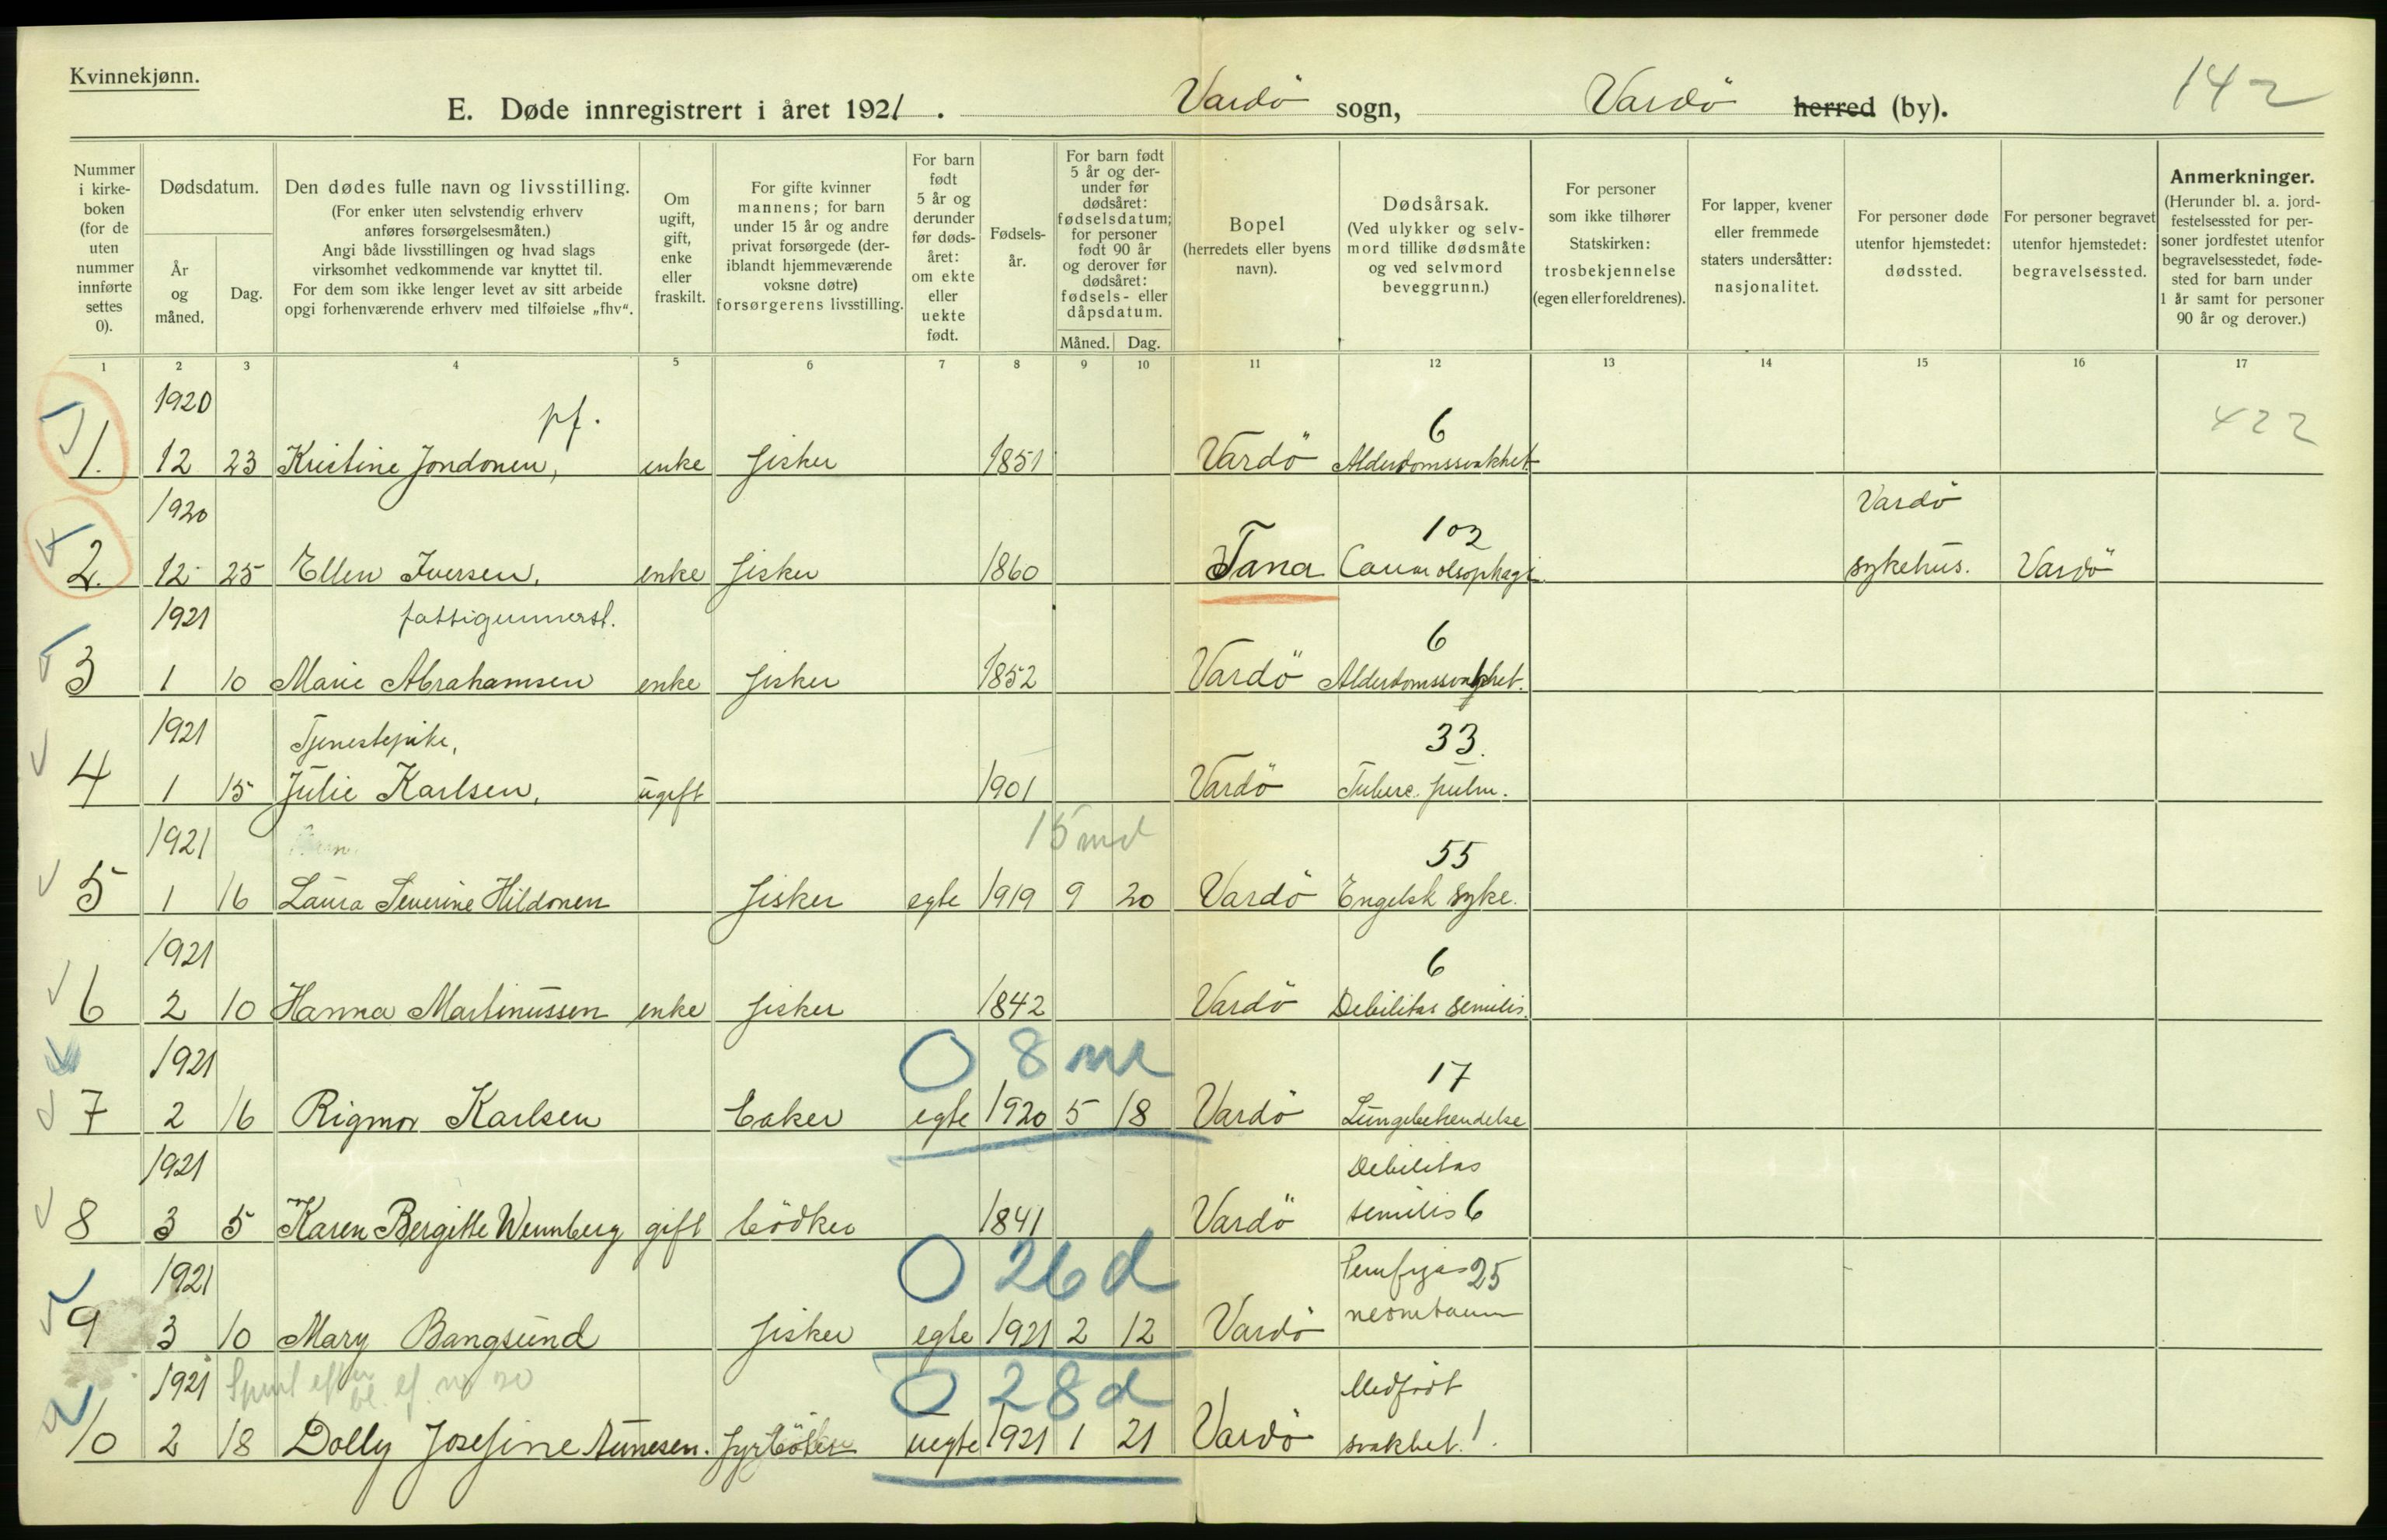 Kvinnekjønn.
142
E. Døde innregistrert i året 1921. Vardö sogn, Vardö herred (by).
Nummer i kirkeboken (for de uten nummer innførte settes 0).
Dødsdatum.
År og måned.
Dag.
Den dødes fulle navn og livsstilling.
(For enker uten selvstendig erhverv anføres forsørgelsesmåten.)
Angi både livsstillingen og hvad slags virksomhet vedkommende var knyttet til.
For dem som ikke lenger levet av sitt arbeide opgi forhenværende erhverv med tilføielse „fhv“.
Om ugift, gift, enke eller fraskilt.
For gifte kvinner mannens; for barn under 15 år og andre privat forsørgede (deriblandt hjemmeværende voksne døtre) forsørgerens livsstilling.
For barn født 5 år og derunder før dødsåret: om ekte eller uekte født.
Fødselsår.
For barn født 5 år og derunder før dødsåret: fødselsdatum; for personer født 90 år og derover før dødsåret: fødsels- eller dåpsdatum.
Måned. Dag.
Bopel (herredets eller byens navn).
Dødsårsak.
(Ved ulykker og selvmord tillike dødsmåte og ved selvmord beveggrunn.)
For personer som ikke tilhører Statskirken: trosbekjennelse (egen eller foreldrenes).
For lapper, kvener eller fremmede staters undersåtter: nasjonalitet.
For personer døde utenfor hjemstedet: dødssted.
For personer begravet utenfor hjemstedet: begravelsessted.
Anmerkninger.
(Herunder bl. a. jordfestelsessted for personer jordfestet utenfor begravelsesstedet, fødested for barn under 1 år samt for personer 90 år og derover.)
1 2 3 4 5 6 7 8 9 10 11 12 13 14 15 16 17
1920 pf. 6 422
1. 12 23 Kristine Jondonen, enke fisker 1851 Vardö Alderdomssvakhet
1920 102 Vardö
2. 12 25 Ellen Iversen, enke fisker 1860 Tana sykehus. Vardö
1921 6
3 1 10 Marie Abrahamsen enke fisker 1852 Vardö Alderdomssvakhet.
1921 Tjenestepike, 33.
4 1 15 Julie Karlsen, ugift 1901 Vardö Tuberc. pulm.
1921 15 md 55
5 1 16 Laura Severine Hildonen fisker egte 1919 9 20 Vardö Engelsk syke.
1921 6
6 2 10 Hanna Martinussen enke fisker 1842 Vardö Debilitas senilis.
1921 0 8 m 17
7 2 16 Rigmor Karlsen baker egte 1920 5 18 Vardö Lungebetendelse
1921 Debilitas
8 3 5 Karen Bergitte Wennberg gift bödker 1841 Vardö senilis 6
1921 0 26 d 25
9 3 10 Mary Bangsund fisker egte 1921 2 12 Vardö
1921 0 28 d Medfödt
10 2 18 Dolly Josefine fyrböter uegte 1921 1 21 Vardö svakhet. 1.